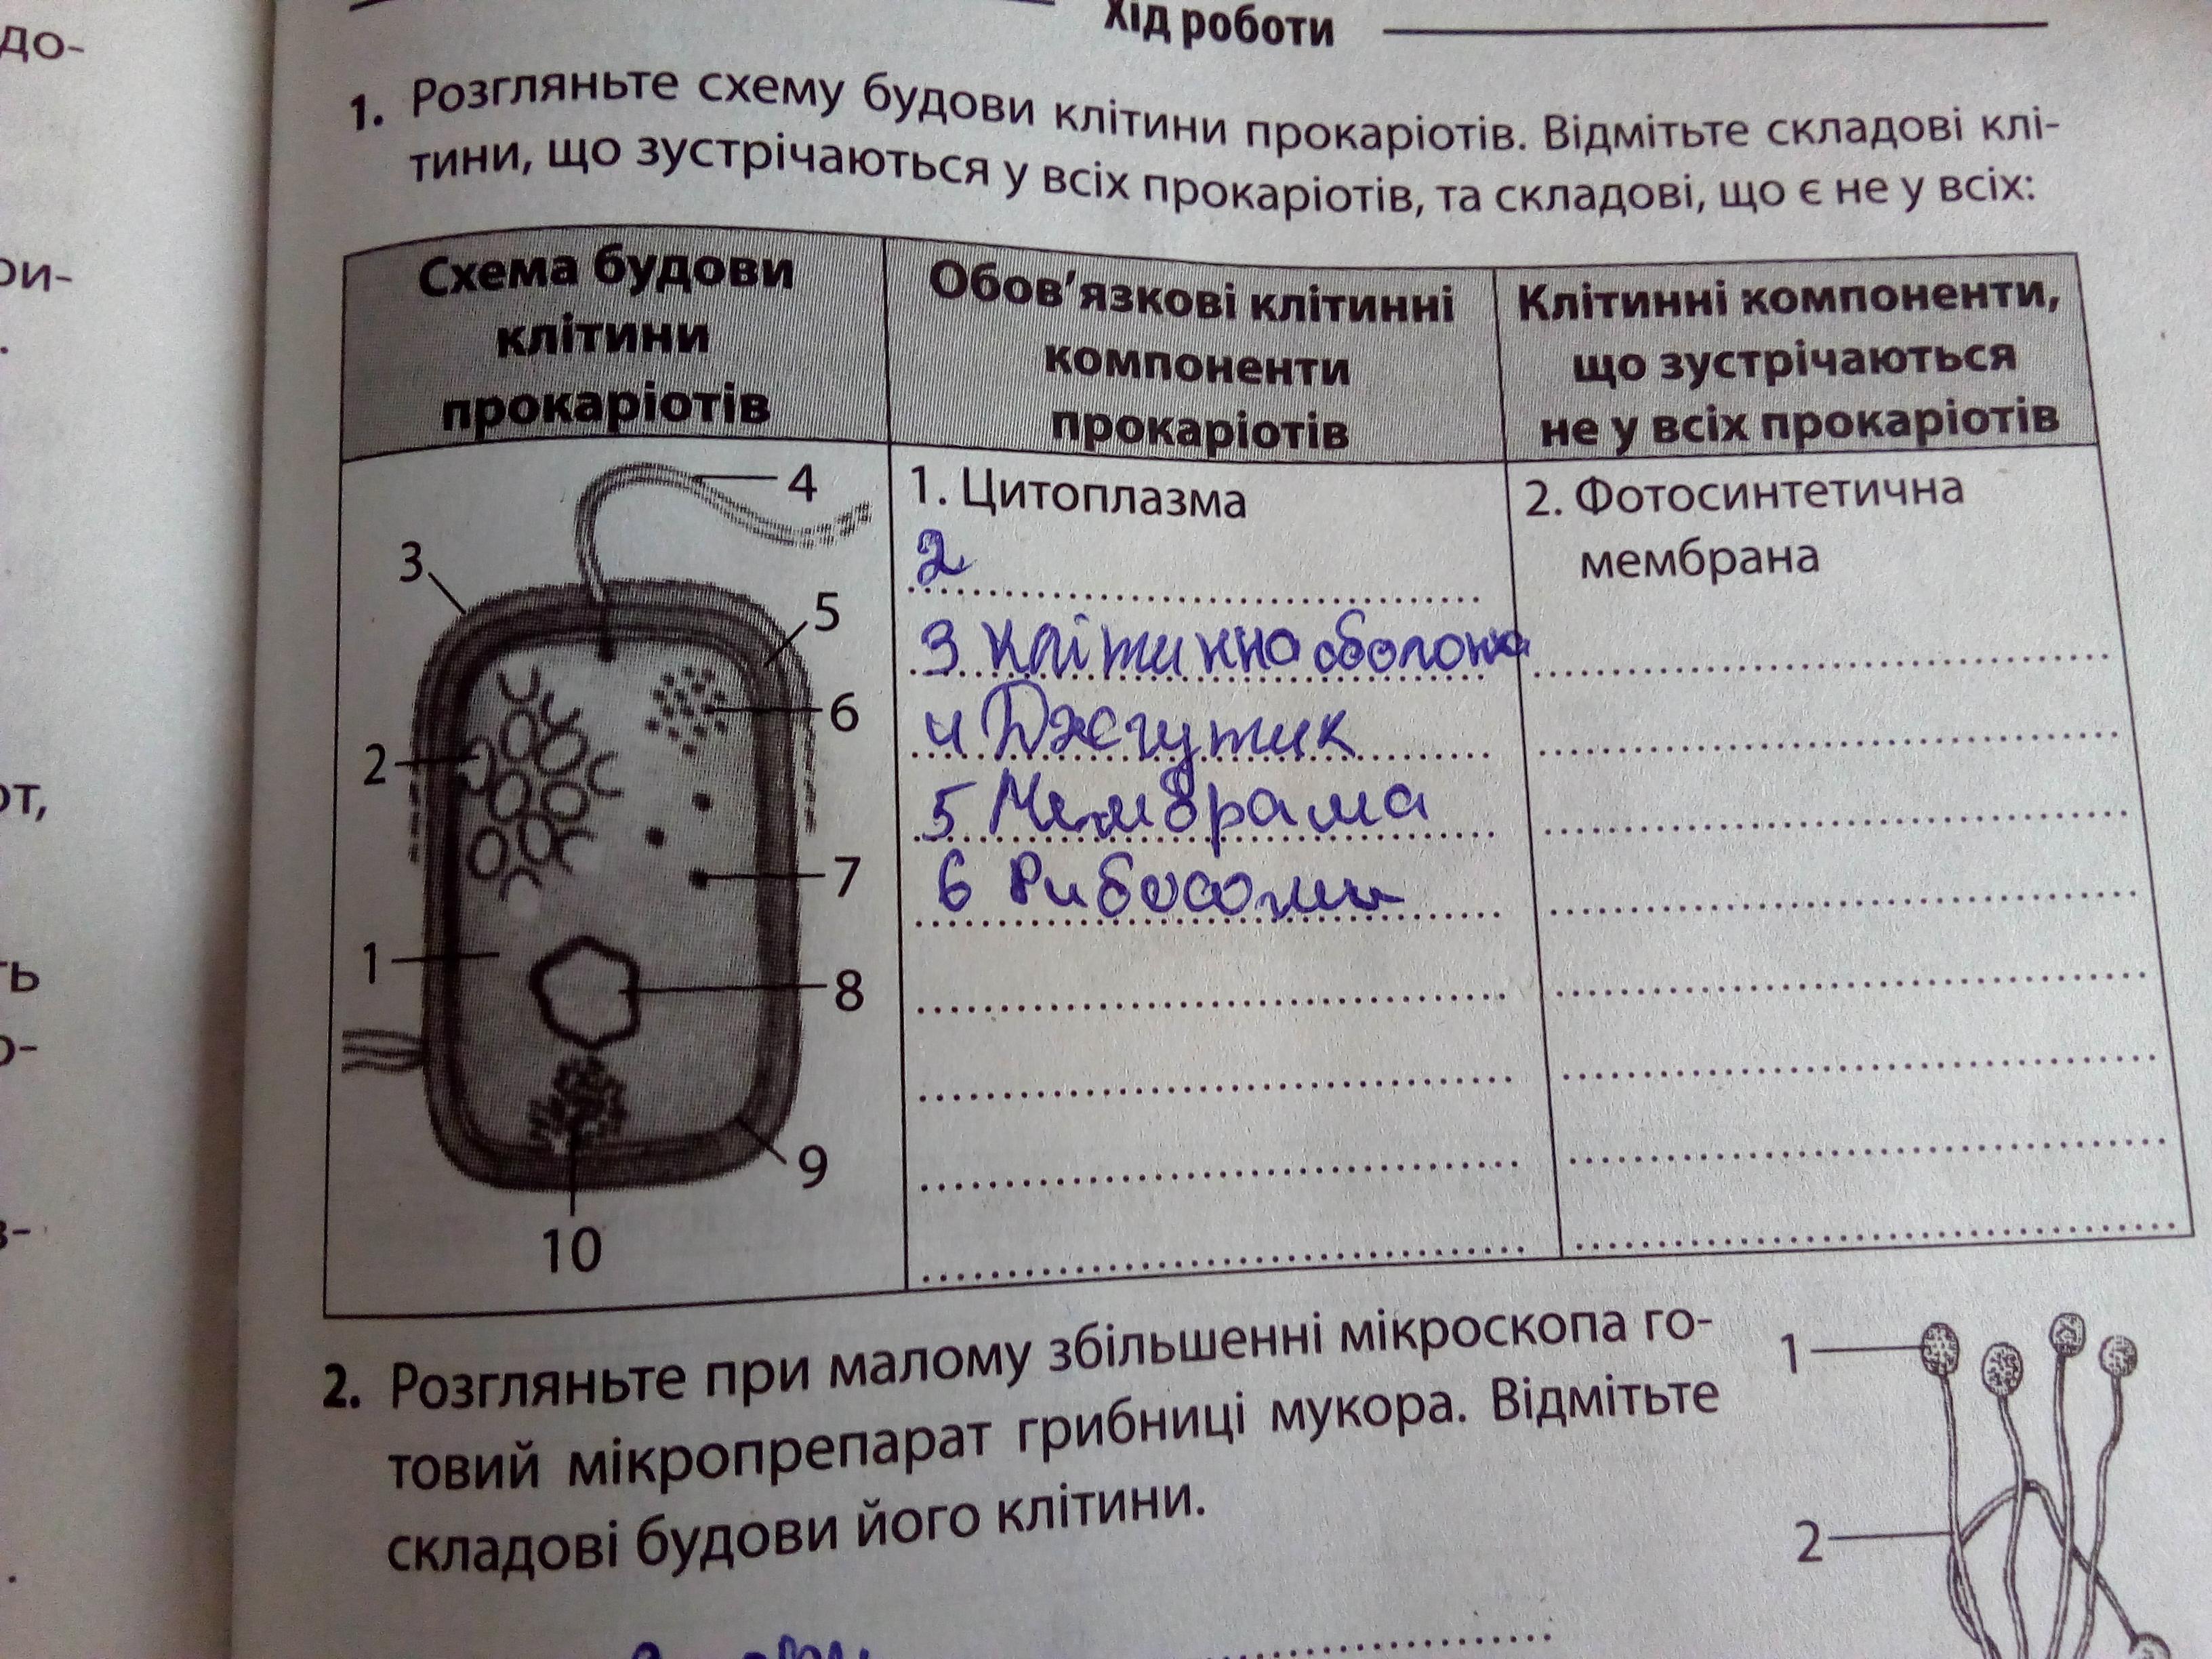 до-
ри-
.
от,
ть
о-
з-
.
Хід роботи
1. Розгляньте схему будови клітини прокаріотів. Відмітьте складові клі-
тини, що зустрічаються у всіх прокаріотів, та складові, що є не у всіх:
Схема будови
клітини
прокаріотів
Обов'язкові клітинні
компоненти
прокаріотів
Клітинні компоненти,
що зустрічаються
не у всіх прокаріотів
4
3
5
6
2
7
1
8
9
10
1. Цитоплазма
2
3 клітинна оболонка
4 Джгутик
5 Мембрама
6 Рибосоми
2. Фотосинтетична
мембрана
2. Розгляньте при малому збільшенні мікроскопа го-
товий мікропрепарат грибниці мукора. Відмітьте
складові будови його клітини.
1
2